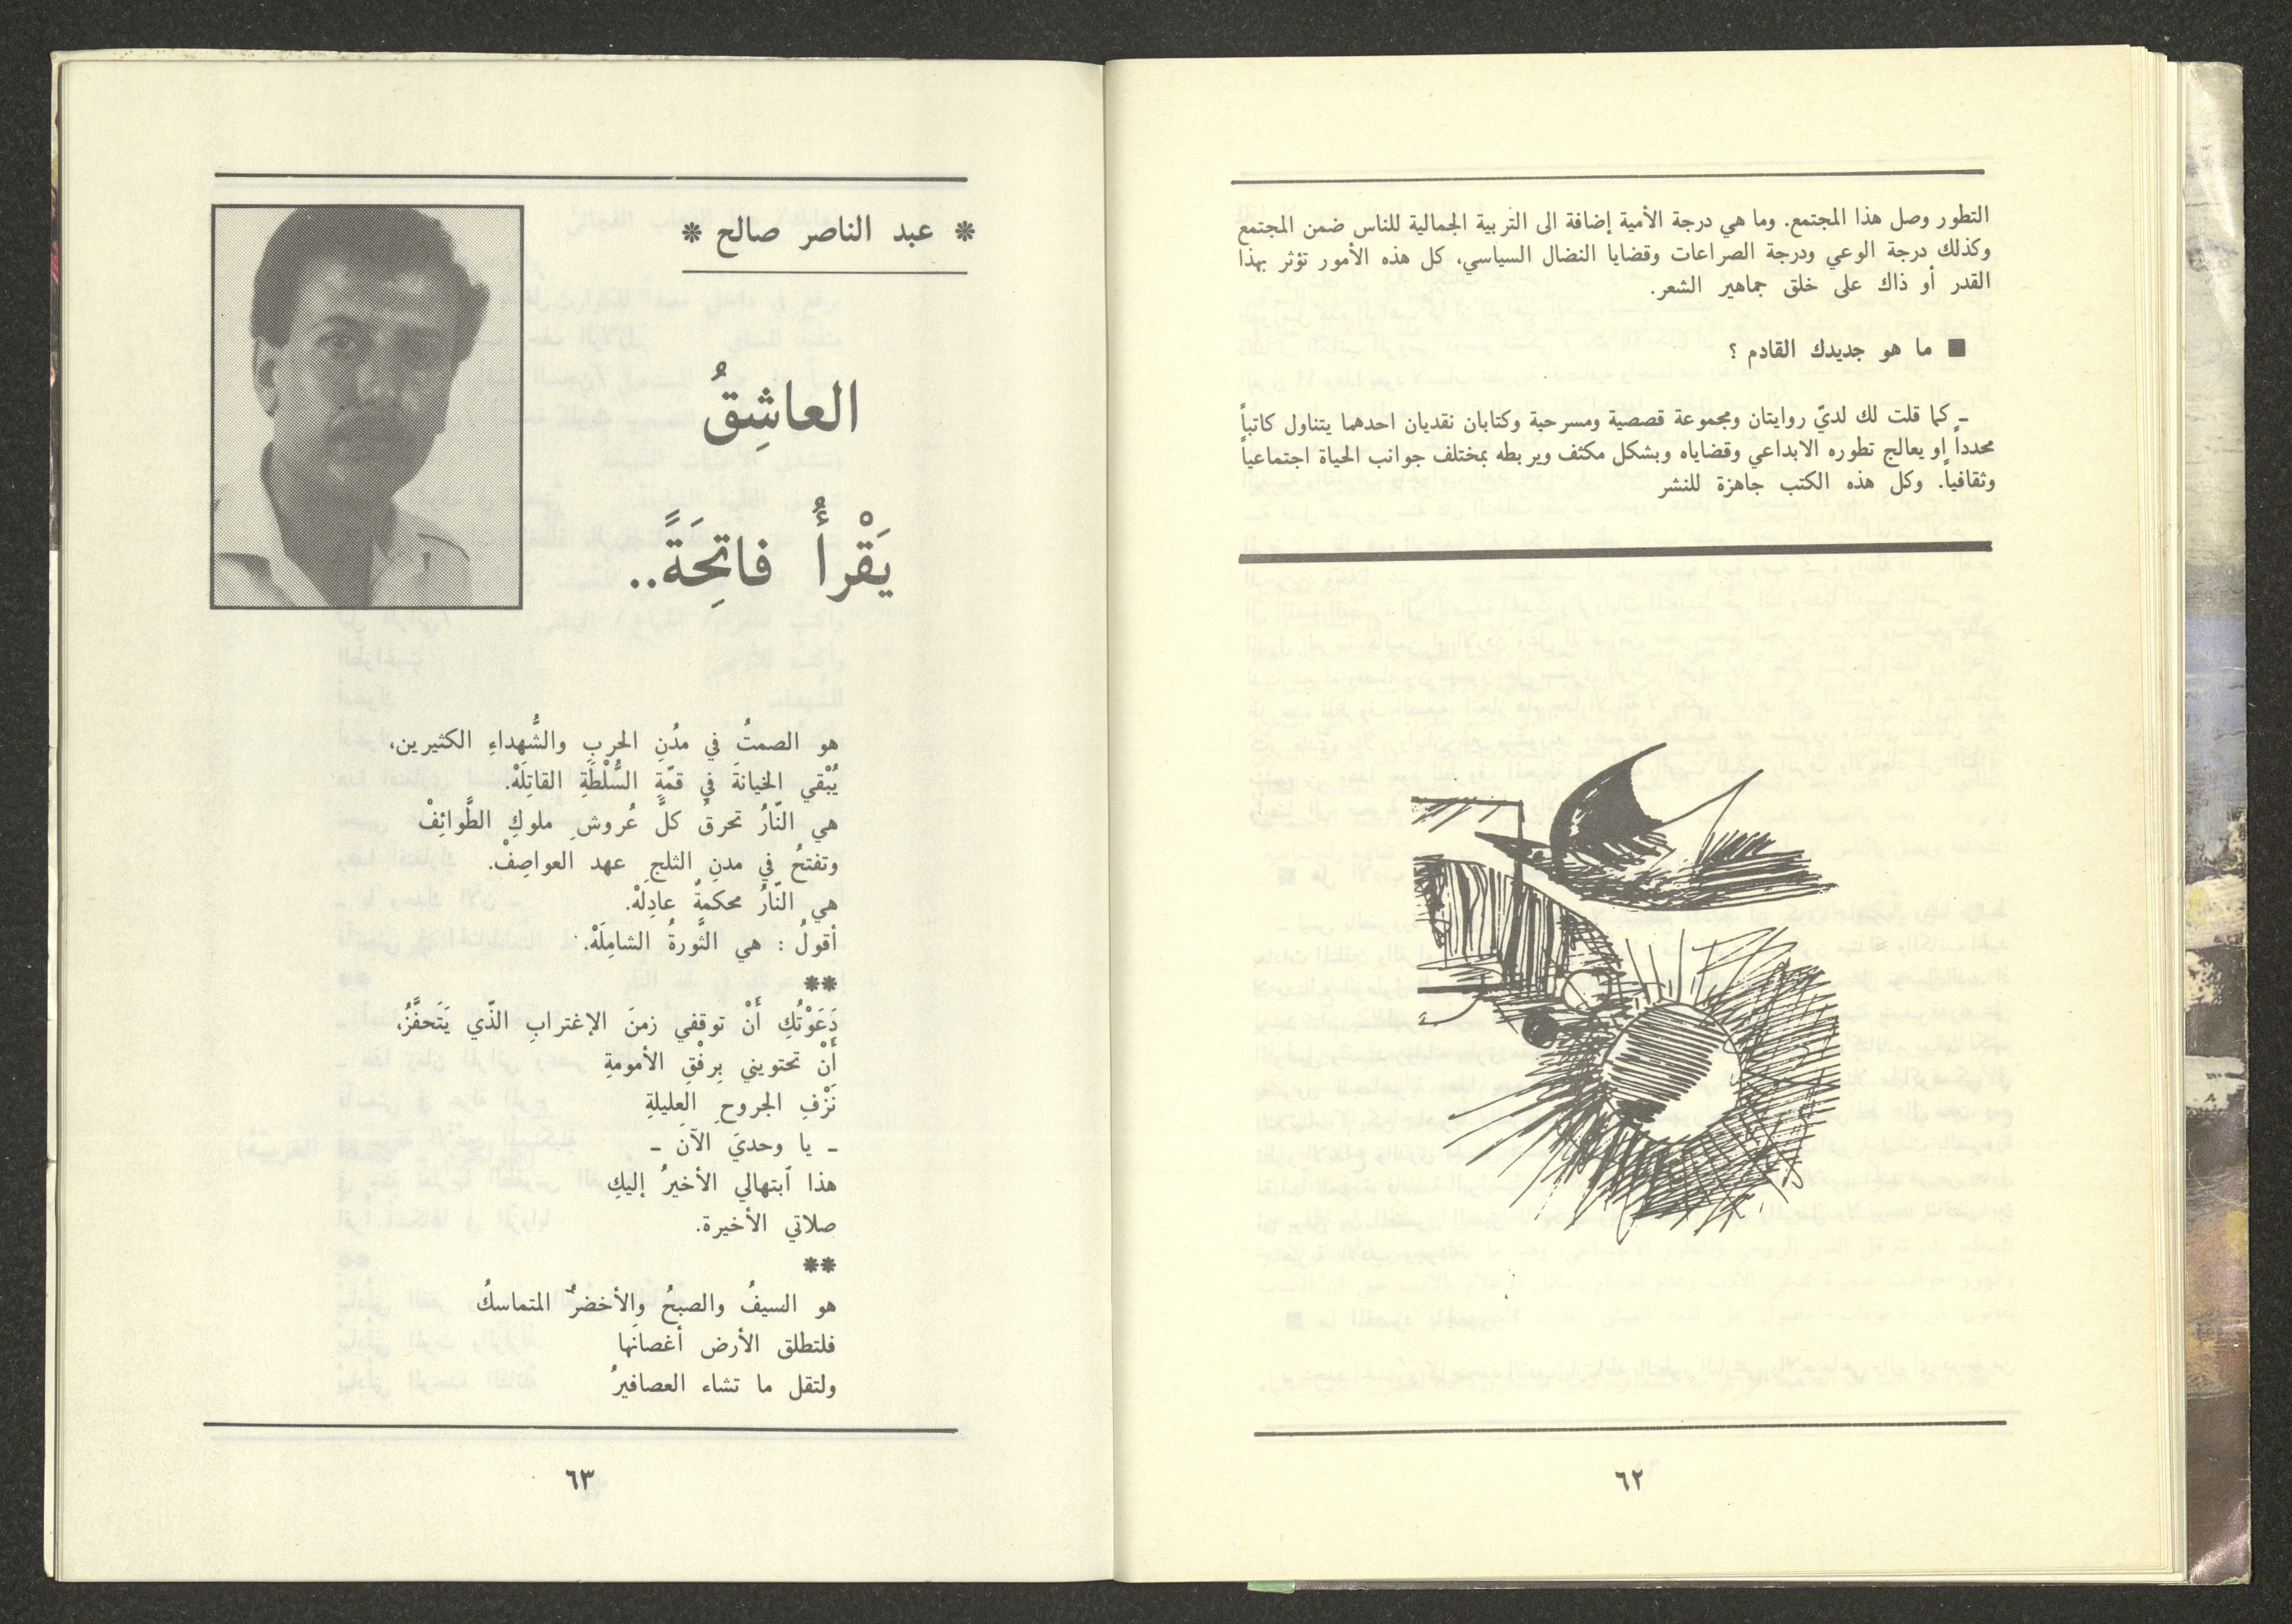 التطور وصل هذا المجتمع. وما هي درجة الأمية إضافة الى التربية الجمالية للناس ضمن المجتمع
وكذلك درجة الوعي ودرجة الصراعات وقضايا النضال السياسي، كل هذه الأمور تؤثر بهذا
القدر أو ذاك على خلق جماهير الشعر.
■ ما هو جديدك القادم ؟
ـ كما قلت لك لديّ روايتان ومجموعة قصصية ومسرحية وكتابان نقديان احدهما يتناول كاتباً
محدداً او يعالج تطوره الابداعي وقضاياه وبشكل مكثف ويربطه بمختلف جوانب الحياة اجتماعياً
وثقافياً. وكل هذه الكتب جاهزة للنشر
٦٢
* عبد الناصر صالح *
العاشِقُ
يَقْرأُ فاتحِةًَ..
هو الصمتُ في مدُنِ الحربِ والشُّهداءِ الكثيرين،
يُبْقي الخيانةَ في قمّةِ السُّلْطَةِ القاتِلَهْ.
هي النّارُ تحرقُ كلَّ عُروشِ ملوكِ الطَّوائِفْ
وتفتحُ في مدنِ الثلجِ عهد العواصِفْ.
هي النّارُ محكمةٌ عادِلَهْ.
أقولُ : هي الثَّورةُ الشامِلَهْ.
**
دَعَوْتُكِ أَنْ توقفي زمنَ الإغترابِ الّذي يَتَحفَّزُ،
أَنْ تحتويني بِرفْقِ الأمومةِ
نَزْفِ الجروحِ العليلةِ
ـ يا وحديَ الآنَ ـ
هذا ٱبتهالي الأخيرُ إليكِ
صلاتي الأخيرة.
**
هو السيفُ والصبحُ والأخضرُ المتماسكُ
فلتطلق الأرض أغصانَها
ولتقل ما تشاء العصافيرُ
٦٣